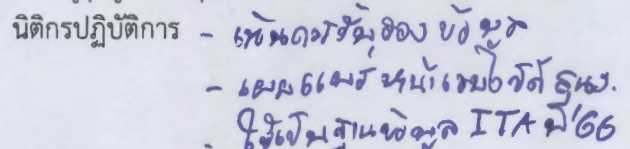 นิติกรปฏิบัติการ - เห็นควรรับรองข้อมูล
- เผยแพร่หน้าเว็บไซต์
- ใช้เป็นฐานข้อมูล ITA ปี'66